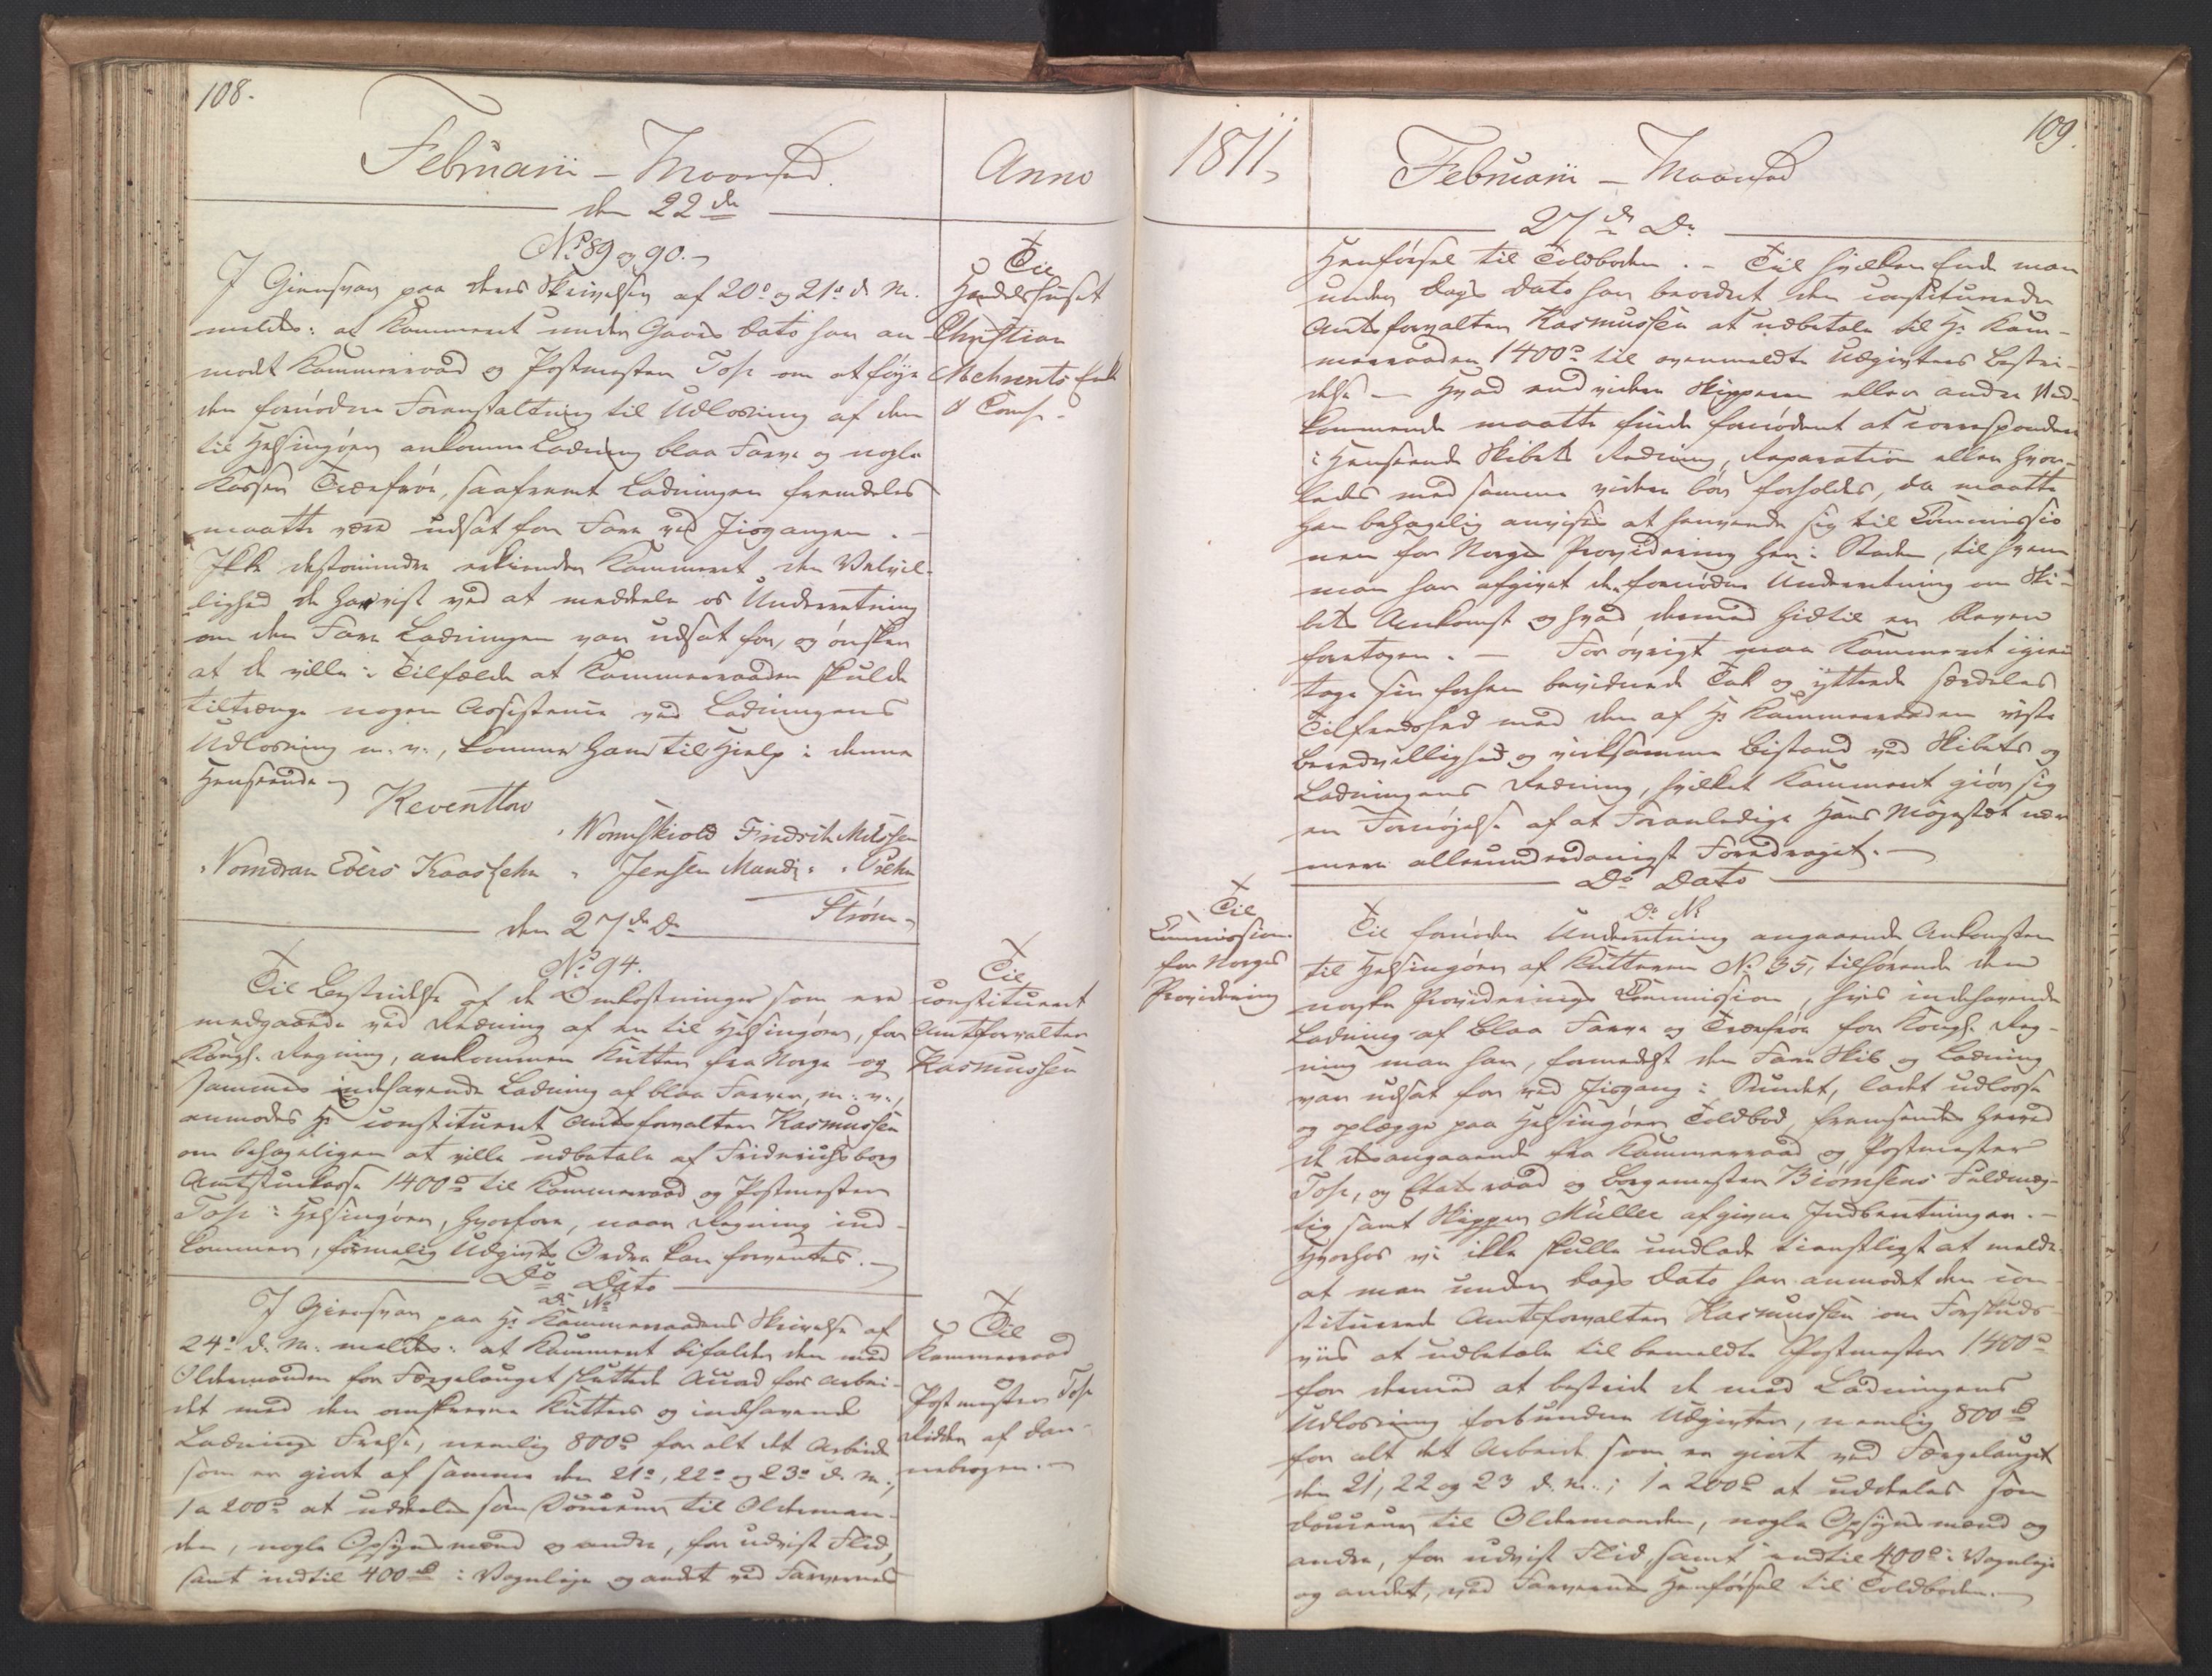 108.
Februarii - Maaned.
Anno
den 22de
No 89 og 90.
Til
Handelshuset
Christian
Mehrents Enke
& Comp.
I Giensvar paa deres Skrivelser af 20de og 21de d. M.
meldes: at Kammeret under Gaars Dato har an-
modet Kammerraad og Postmester Fosz om at føye
den fornødne Foranstaltning til Udlosning af den
til Helsingøer ankomne Ladning blaa Farve og nogle
Kasser Træefrøe, saafremt Ladningen fremdeles
maatte være udsat for Fare ved Jisgangen. -
Ikke destomindre erkiender Kammeret den Velvil-
lighed de har viist ved at meddele os Underretning
om den Fare Ladningen var udsat for, og ønsker
at de ville i Tilfælde at Kammerraaden skulde
tiltrænge nogen Assistence ved Ladningens
Udlosning m. v., komme ham til Hielp i denne
Henseende
Reventlow
Wormskiold Fridrik Nilssen
Vondran Eders Kaas Lehn Jensen Mandix Oxehn
Strøm
den 27de Do
No 94.
Til
constitueret
Amtsforvalter
Rasmussen
Til Bestridelse af de Omkostninger som ere
medgaaede ved Redning af en til Helsingøer, for
Kongl. Regning, ankommen Kutter fra Norge og
sammes indehavende Ladning af blaa Farver, m. v.,
anmodes Hr constitueret Amtsforvalter Rasmussen
om behageligen at ville udbetale af Friderichsborg
Amtstuekasse 1400 rd til Kammerraad og Postmester
Fosz i Helsingøer, hvorfore, naar Regning ind-
kommer, formelig Udgivts Ordre kan forventes.
Do Dato
ad No
Til
Kammerraad
og
Postmester Fosz
Ridder af Dan-
nebrogen.
I Giensvar paa Hr Kammerraadens Skrivelse af
24de d. M. meldes: at Kammeret bifalder den med
Oldermanden for Færgelauget sluttede Accord for Arbei-
det med den omskrevne Kutters og indehavende
Ladnings Frelse, nemlig 800 rd for alt det Arbeide
som er giort af samme den 21de, 22de og 23de d. M.;
1 a 200 rd at uddeles som Douceur til Olderman-
den, nogle Opsynsmænd og andre, for udviist Flid,
samt indtil 400 rd i Vognleje og andet ved Farvernes
1811,
Februarii - Maaned
109.
27de Do
Henførsel til Toldboden. - Til hvilken Ende man
under Dags Dato har beordret den constituerede
Amtsforvalter Rasmussen at udbetale til Hr Kam-
merraaden 1400 rd til ovenmeldte Udgivters Bestri-
delse - Hvad endvidere Skipperen eller andre Ved-
kommende maatte finde fornødent at correspondere
i Henseende Skibets Redning, Reparation eller hvor-
ledes med samme videre bør forholdes, da maatte
han behagelig anvises at henvende sig til Commissio
nen for Norges Providering her i Staden, til hvem
man har afgivet den fornødne Underretning om Ski-
bets Ankomst og hvad dermed hidtil er bleven
foretagen. - For øvrigt maa Kammeret igien-
tage sin forhen bevidnede Tak og yttrede særdeles
Tilfredshed med den af Hr Kammerraaden viste
Beredvillighed og virksomme Bistand ved Skibets og
Ladningens Redning, hvilket Kammeret giør sig
en Fornøjelse af at Foranledige Hans Majestæt nær-
mere allerunderdanigst Foredraget. -
Do Dato
Do No
Til
Commissionen
for Norges
Providering
Til fornøden Underretning angaaende Ankomsten
til Helsingøer af Kutteren No 35, tilhørende den
norske Providerings Commission, hvis indehavende
Ladning af blaa Farve og Træefrøe for Kongl. Reg-
ning man har, formedelst den Fare Skib og Ladning
var udsat for ved Jisgang i Sundet, ladet udlosse
og oplægge paa Helsingøers Toldbod, fremsendes herved
de desangaaende fra Kammerraad og Postmester
Fosz, og Etatsraad og Borgemester Biørnsens Fuldmæg-
tig samt Skipper Müller afgivne Indberetninger. -
Hvorhos vi ikke skulle undlade tienstligst at melde,
at man under Dags Dato har anmodet den con-
stituerede Amtsforvalter Rasmussen om Forskuds-
viis at udbetale til bemeldte Postmester 1400 rd
for dermed at bestride de med Ladningens
Udlosning forbundne Udgivter, nemlig 800 rd
for alt det Arbeide som er giort ved Færgelauget
den 21, 22 og 23 d. M.; 1 a 200 rd at uddeles som
Douceur til Oldermanden, nogle Opsynsmænd og
andre, for udviist Flid, samt indtil 400 rd i Vognleje
og andet, ved Farvernes Henførsel til Toldboden.